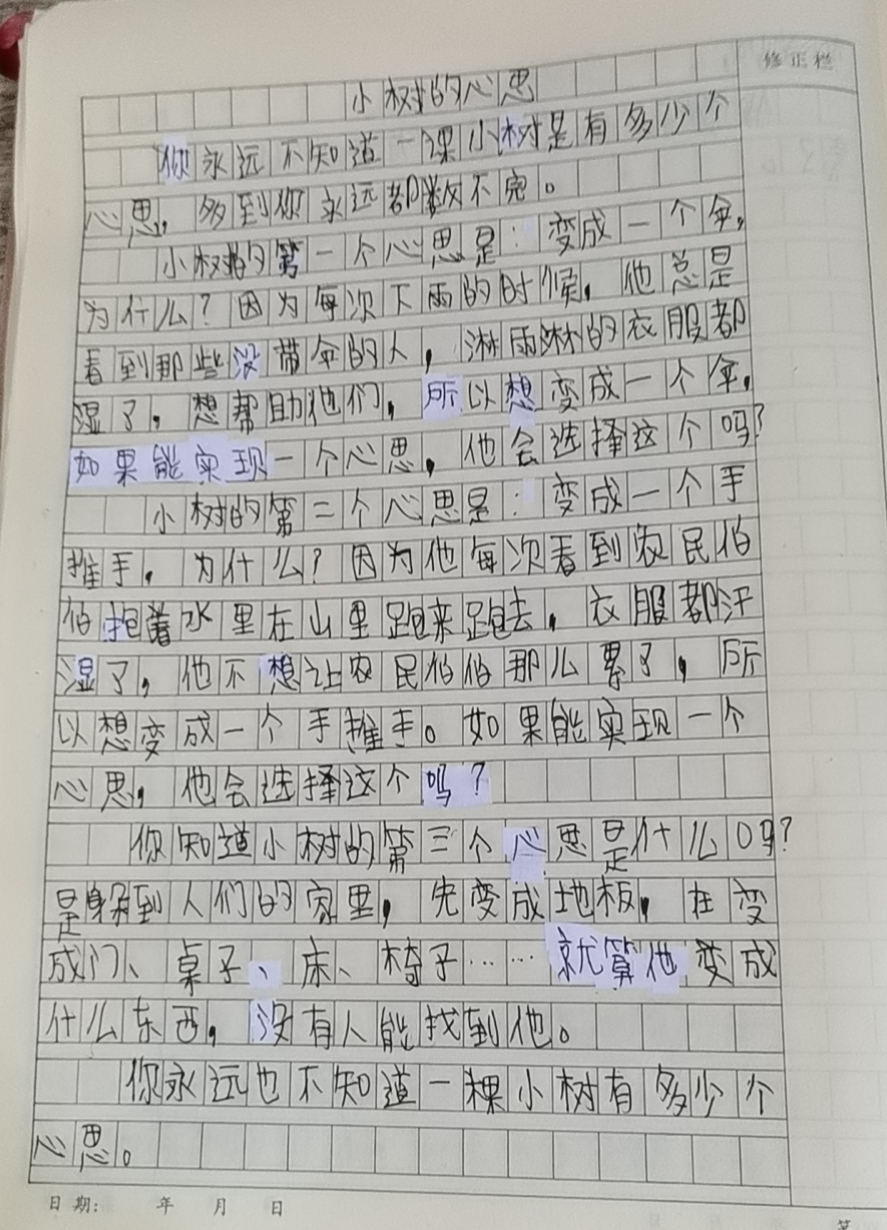 修正栏
小树的心思
你永远不知道一课小树是有多少个
心思，多到你永远都数不完。
小树的第一个心思是：变成一个伞，
为什么？因为每次下雨的时候，他总是
看到那些没带伞的人，淋雨淋的衣服都
湿了，想帮助他们，所以想变成一个伞，
如果能实现一个心思，他会选择这个吗？
小树的第二个心思是：变成一个手
推手，为什么？因为他每次看到农民伯
伯抱着水里在山里跑来跑去，衣服都汗
湿了，他不想让农民伯伯那么累了，所
以想变成一个手推手。如果能实现一个
心思，他会选择这个吗？
你知道小树的第三个心思是什么吗？
是躲到人们的家里，先变成地板，在变
成门、桌子、床、椅子……就算他变成
什么东西，没有人能找到他。
你永远也不知道一棵小树有多少个
心思。
日期： 年 月 日
第